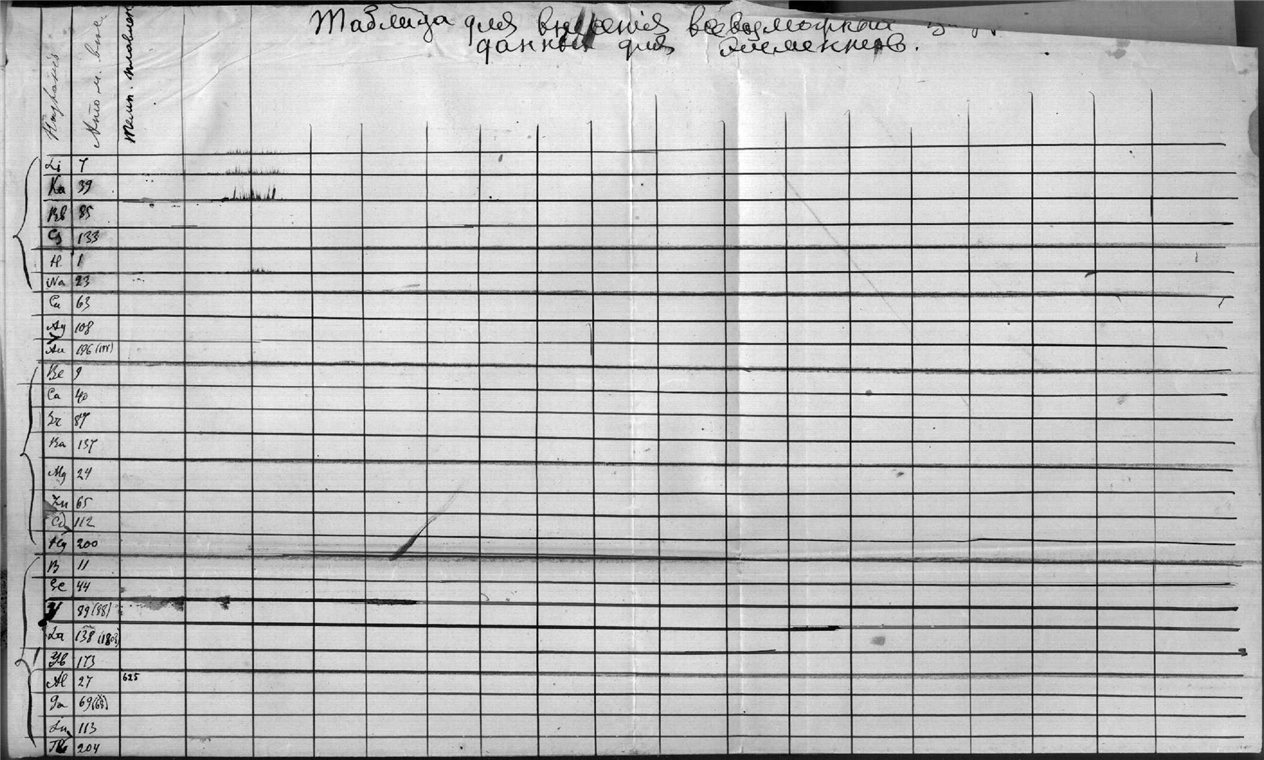 Таблица для внесенія всевозможных
данных для элементов.
Названія
Атом. вес
темп. плавлен
Li 7
Ka 39
Rb 85
Cs 133
H 1
Na 23
Cu 63
Ag 108
Au 196
Be 9
Ca 40
Sr 87
Ba 137
Mg 24
Zn 65
Cd 112
Hg 200
B 11
Sc 44
Y 89 (88)
La 138
Yb 173
Al 27 625
Ga 69
In 113
Tl 204